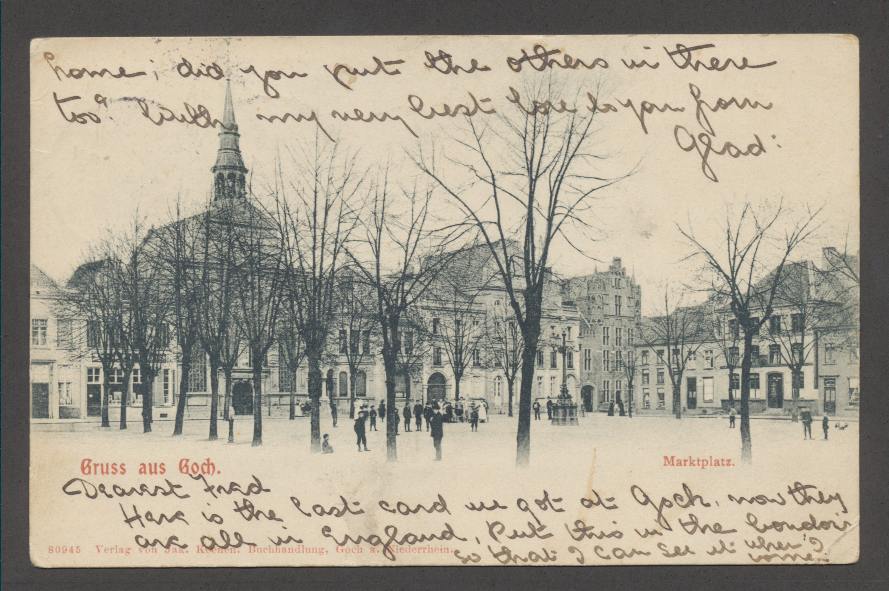 home; did you put the others in there
too? With my very best love to you from
Glad:
Gruss aus Goch.
Marktplatz.
Dearest Fred
Here is the last card we got at Goch, now they
are all in England, Put this in the
so that I can see it when I
come
80945 Verlag von Jak. Buchhandlung, Goch a. Niederrhein.